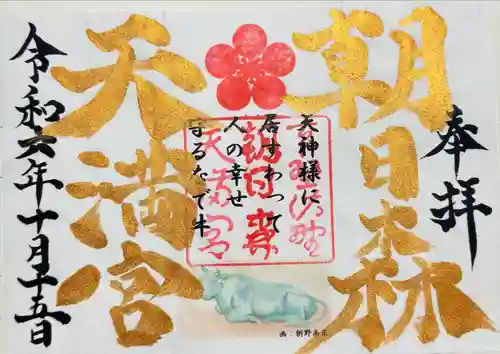 奉拝
朝日森
天満宮
天神様に
居すわって
人の幸せ
なで牛
野佐野
朝日森
天満宮
令和六年十月十五日
画：